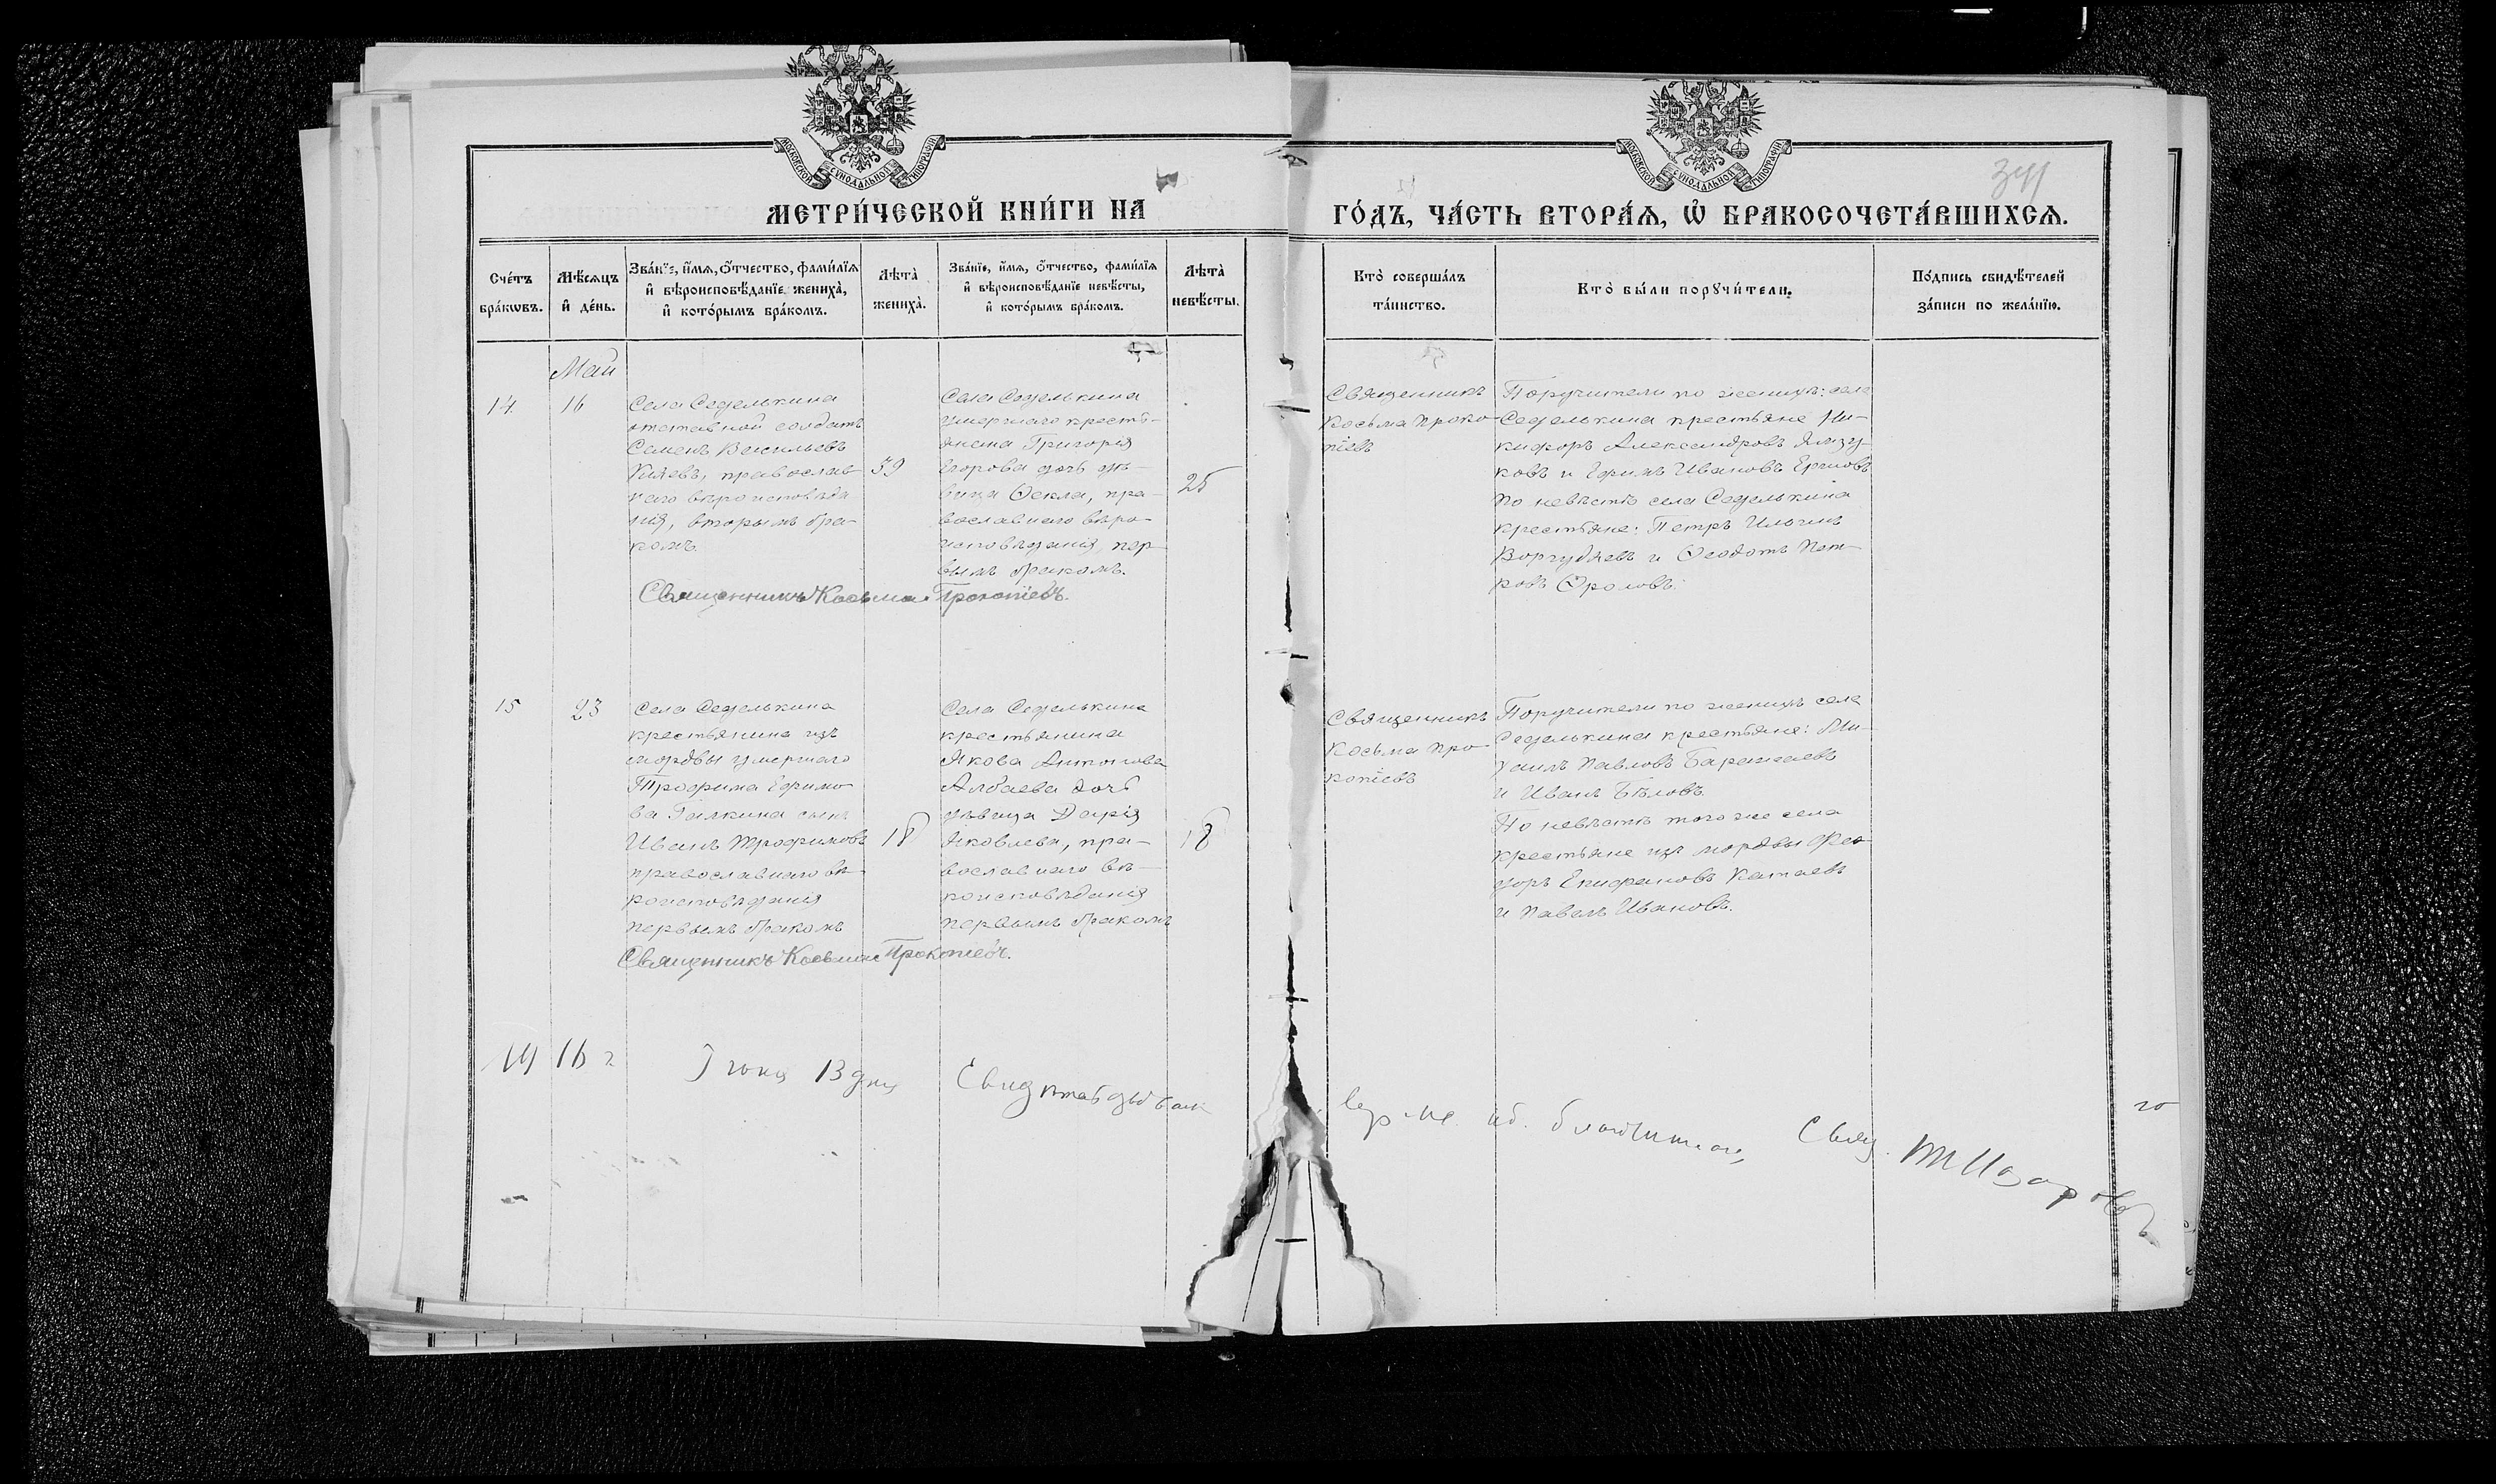 МОСКОВСКОЙ СѴНОДАЛЬНОЙ ТИПОГРАФІИ
МОСКОВСКОЙ СѴНОДАЛЬНОЙ ТИПОГРАФІИ
341
МЕТРИ́ЧЕСКОЙ КНИ́ГИ НА
ГО́ДЪ, ЧА́СТЬ ВТОРА́Ѧ, Ѡ҆ БРАКОСОЧЕТА́ВШИХСѦ.
Сче́тъ
бра́кѡвъ.
Мѣ́сѧцъ
и҆ де́нь.
Зва́нїе, и҆́мѧ, ѻ҆́тчество, фами́лїѧ
и҆ вѣроисповѣ́данїе жениха̀,
и҆ кото́рымъ бра́комъ.
Лѣта̀
жениха̀.
Зва́нїе, и҆́мѧ, ѻ҆́тчество, фами́лїѧ
и҆ вѣроисповѣ́данїе невѣ́сты,
и҆ кото́рымъ бра́комъ.
Лѣта̀
невѣ́сты.
Кто̀ соверша́лъ
та́инство.
Кто̀ бы́ли порꙋчи́тели.
По́дпись свидѣ́телей
за́писи по жела́нїю.
Май
14
16
Села Седелькина
отставной солдатъ
Семенъ Васильевъ
православ-
наго вѣроисповѣда
нія, вторымъ бра-
комъ.
39
Села Седелькина
умершаго кресть-
янина Григорія
Егорова дочь дѣ-
вица Ѳекла, пра-
вославнаго вѣро-
исповѣданія, пер-
вымъ бракомъ.
25
Священникъ
Косьма Проко-
піевъ
Поручители по женихѣ: села
Седелькина крестьяне Ни-
кифоръ Александровъ
ковъ и Ефимъ Ивановъ
По невѣстѣ села Седелькина
крестьяне: Петръ Ильинъ
и Ѳеодотъ Пет-
ровъ Ѳроловъ.
Священникъ Косьма Прокопіевъ.
15
23
Села Седелькина
крестьянина изъ
мордвы умершаго
Трофима Ефимо
ва Галкина сынъ
Иванъ Трофимовъ
православнаго вѣ-
роисповѣданія
первымъ бракомъ
18
Села Седелькина
крестьянина
Якова Антонова
Албаева дочь
дѣвица Дарія
Яковлева, пра-
вославнаго вѣ-
роисповѣданія
первымъ бракомъ
18
Священникъ
Косьма Про-
копіевъ
Поручители по женихѣ села
Седелькина крестьяне: Ми-
хаилъ Павловъ
и Иванъ Бѣловъ.
По невѣстѣ того же села
крестьяне изъ мордвы Фео-
доръ Епифановъ Катаевъ
и Павелъ Ивановъ.
Священникъ Косьма Прокопіевъ.
1916 г
Іюня 13 дня
Свящ. Назаровъ